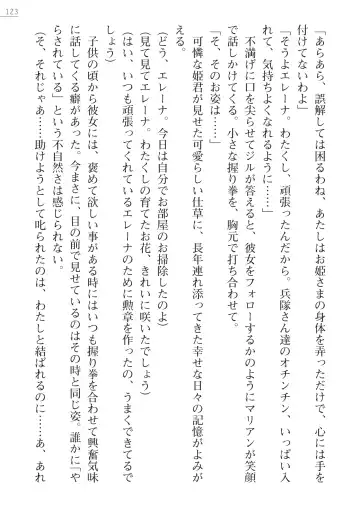 123
「あらあら、誤解しては困るわね、あたしはお姫さまの身体を弄っただけで、心には手を
付けてないわよ」
「そうよエレーナ。わたくし、頑張ったんだから。兵隊さん達のオチンチン、いっぱい入
れて、気持ちよくなれるように……」
不満げに口を尖らせてジルが答えると、彼女をフォローするかのようにマリアンが笑顔
で話しかけてくる。小さな握り拳を、胸元で打ち合わせて。
「そ、そのお姿は……」
可憐な姫君が見せた可愛らしい仕草に、長年連れ添ってきた幸せな日々の記憶がよみが
える。
(どう、エレーナ。今日は自分でお部屋のお掃除したのよ)
(見て見てエレーナ。わたくしの育てたお花、きれいに咲いたでしょう)
(はい、いつも頑張ってくれているエレーナのために勲章を作ったの、うまくできてるで
しょう)
子供の頃から彼女には、褒めて欲しい事がある時にはいつも握り拳を合わせて興奮気味
に話しかける癖があった。今まさに、目の前で見せているのはその時と同じ姿。誰かに「や
らされている」という不自然さは感じられない。
(そ、それじゃあ……助けようとして叱られたのは、わたしと結ばれるのに……あ、あれ